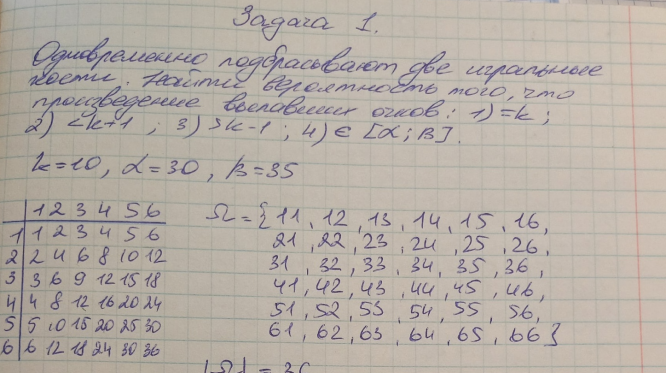 Задача 1.
Одновременно подбрасывают две игральные
кости. Найти вероятность того, что
произведение выпавших очков: 1) = k ;
2) < k+1 ; 3) > k-1 ; 4) ∈ [α ; β].
k=10, α=30, β=35
1 2 3 4 5 6
1 1 2 3 4 5 6
2 2 4 6 8 10 12
3 3 6 9 12 15 18
4 4 8 12 16 20 24
5 5 10 15 20 25 30
6 6 12 18 24 30 36
Ω = {11, 12, 13, 14, 15, 16,
21, 22, 23, 24, 25, 26,
31, 32, 33, 34, 35, 36,
41, 42, 43, 44, 45, 46,
51, 52, 53, 54, 55, 56,
61, 62, 63, 64, 65, 66}
|Ω| = 36